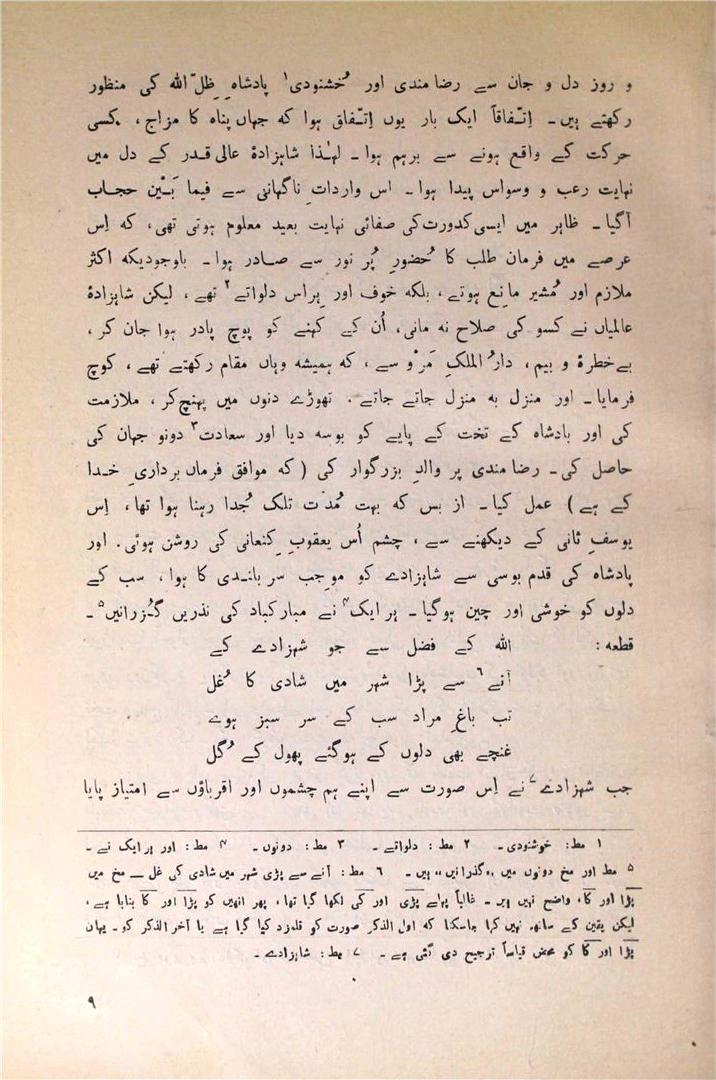 و روز دل و جان سے رضا مندی اور خُشنودی۱ پادشاہِ ظلّ الله کی منظور
رکھتے ہیں۔ اِتّفاقاً ایک بار یوں اِتّفاق ہوا کہ جہاں پناہ کا مزاج ، کسی
حرکت کے واقع ہونے سے برہم ہوا۔ لہٰذا شاہزادۂ عالی قدر کے دل میں
نہایت رعب و وسواس پیدا ہوا۔ اس وارداتِ ناگہانی سے فیما بَیْن حجاب
آگیا۔ ظاہر میں ایسی کدورت کی صفائی نہایت بعید معلوم ہوتی تھی، کہ اِس
عرصے میں فرمان طلب کا حُضورِ پُر نور سے صادر ہوا۔ باوجودیکہ اکثر
ملازم اور مُشیر مانِع ہوتے ، بلکہ خوف اور ہِراس دلواتے۲ تھے ، لیکن شاہزادۂ
عالمیاں نے کسو کی صلاح نہ مانی، اُن کے کہنے کو پوچ پادر ہوا جان کر ،
بے خطرہ و بیم ، دارُ الملکِ مَرْو سے ، کہ ہمیشہ وہاں مقام رکھتے تھے ، کوچ
فرمایا۔ اور منزل بہ منزل جاتے جاتے ۔ تھوڑے دنوں میں پہنچ کر ، ملازمت
کی اور بادشاہ کے تخت کے پایے کو بوسہ دیا اور سعادت۳ دونو جہان کی
حاصل کی۔ رضا مندی پر والدِ بزرگوار کی (کہ موافق فرماں برداریِ خدا
کے ہے) عمل کیا۔ از بس کہ بہت مُدّت تلک جُدا رہنا ہوا تھا، اِس
یوسفِ ثانی کے دیکھنے سے ، چشم اُس یعقوبِ کنعانی کی روشن ہوئی۔ اور
پادشاہ کی قدم بوسی سے شاہزادے کو موجب سر بلندی کا ہوا ، سب کے
دلوں کو خوشی اور چین ہوگیا۔ ہر ایک۴ نے مبارکباد کی نذریں گُزرانیں۵۔
قطعہ: الله کے فضل سے جو شہزادے کے
آنے۶ سے پڑا شہر میں شادی کا غُل
تب باغِ مراد سب کے سر سبز ہوے
غنچے بھی دلوں کے ہوگئے پھول کے گُل
جب شہزادے۷ نے اِس صورت سے اپنے ہم چشموں اور اقرباؤں سے امتیاز پایا
۱ مط: خوشنودی۔ ۲ مط: دلواتے۔ ۳ مط: دونوں۔ ۴ مط: اور ہر ایک نے۔
۵ مط اور مخ دونوں میں ”گذرانیں“ ہیں۔ ۶ مط: آنے سے پڑی شہر میں شادی کی غل — مخ میں
پڑا اور کا، واضح نہیں ہیں۔ غالباً پہلے پڑی اور کی لکھا گیا تھا ، پھر انھیں کو پڑا اور کا بنایا ہے ،
لیکن یقین کے ساتھ نہیں کہا جاسکتا کہ اول الذکر صورت کو قلمزد کیا گیا ہے یا آخر الذکر کو۔ یہاں
پڑا اور کا کو محض قیاساً ترجیح دی گئی ہے۔ ۷ مط: شاہزادے۔
۹